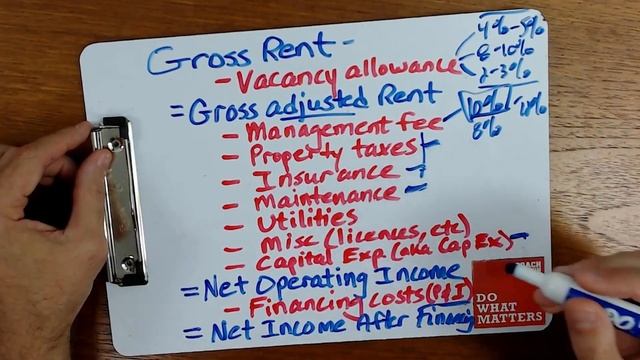 Gross Rent -
- Vacancy allowance
4%-5%
8-10%
2-3%
= Gross adjusted Rent
- Management fee
10%
8%
- Property taxes
- Insurance
- Maintenance
- Utilities
- Misc (licences, etc)
- Capital Exp (aka Cap Ex)
= Net Operating Income
- Financing costs (P&I)
= Net Income After Financing
DO
WHAT
MATTERS